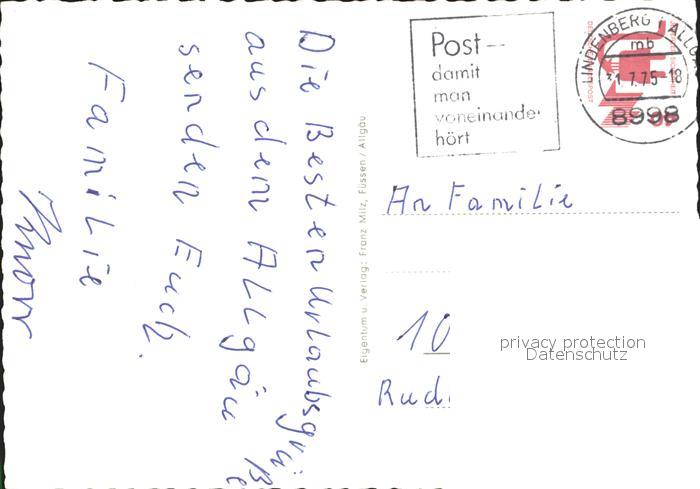 Die Besten Urlaubsgrü
aus dem Allgäu
senden Euch
Familie
Knorr
Eigentum u. Verlag: Franz Milz, Füssen / Allgäu
Post—
damit
man
voneinander
hört
LINDENBERG i ALLG
mb
31.7.75-18
8998
An Familie
10
Rudi
privacy protection
Datenschutz